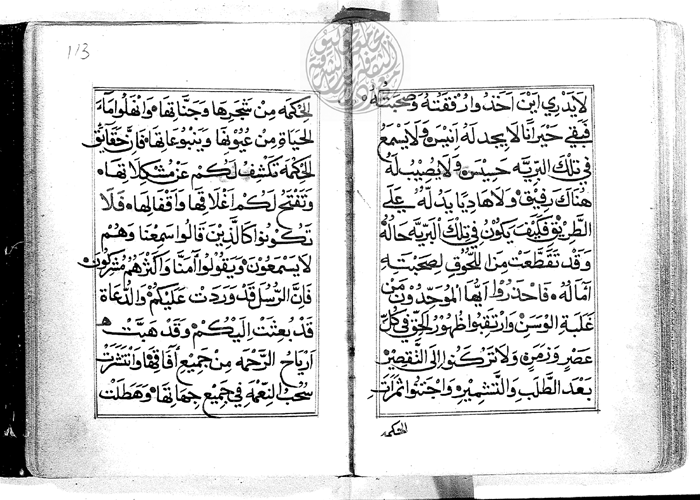 لا يدري اين اخذوا رفقته وصحبته
فبقي حيرانا لا يجد له انيس ولا يسمع
في تلك البريه حسيس ولا يصيب له
هناك رفيق ولا هاديا يدله علي
الطريق فكيف يكون في تلك البريه حاله
وقد تقطعت من اللحوق لصحبته
اماله فاحذروا ايها الموحدون من
غلبة الوسن وارتقبوا ظهور الحق في كل
عصر وزمن ولا تركنوا الى التقصير
بعد الطلب والتشمير واجتنوا ثمرات
الحكمه
113
الحكمه من شجرها وجناتها وانهلوا ماء
الحياة من عيونها وينبوعاتها فان حقايق
الحكمه تكشف لكم عن مشكلاتها
وتفتح لكم اغلاقها واقفالها فلا
تكونوا كالذين قالوا سمعنا وهم
لا يسمعون ويقولوا امنا واكثرهم مشركون
فان الرسل قد وردت عليكم والدعاة
قد بعثت اليكم وقد هبت
ارياح الرحمه من جميع آفاقها وانتشرت
سحب النعمه في جميع جهاتها وهطلت